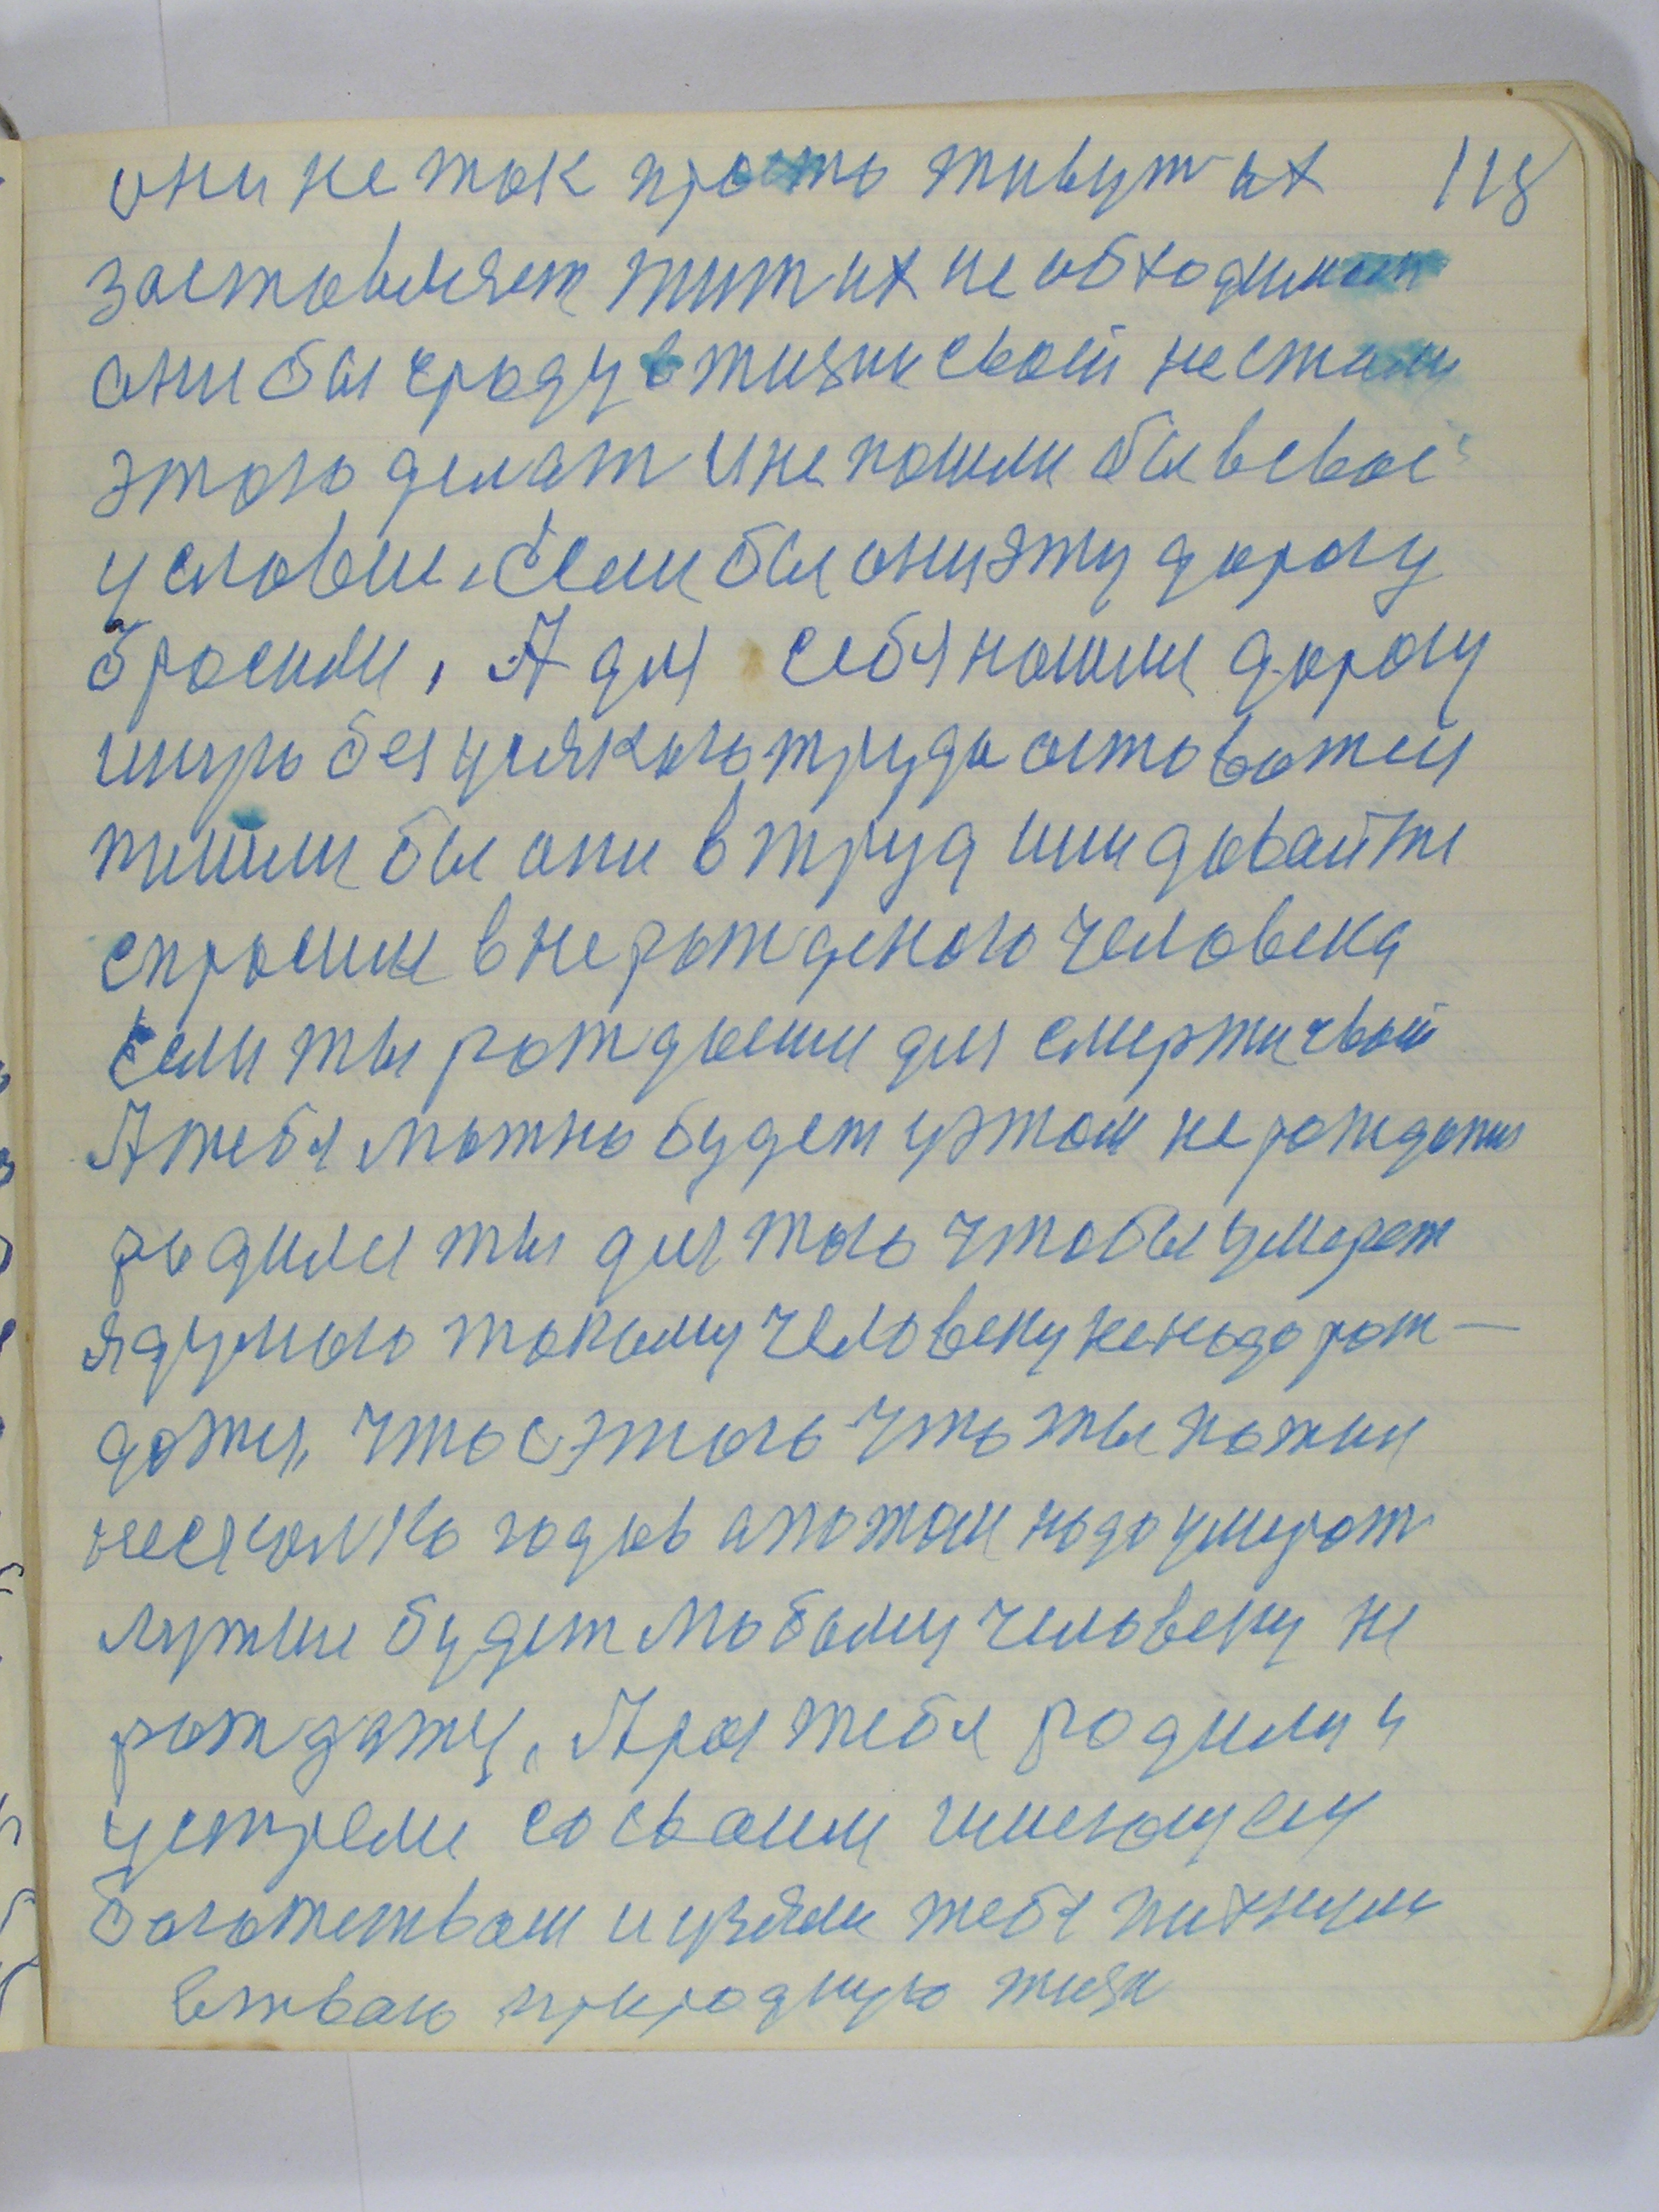 они не так просто живут их 118
заставляет жит их необходимост
они бы сроду в жизни своей не стали
этого делат и не пошли бы в свое
условие, Если бы они эту дорогу
бросили, А для себя нашли дорогу
иную без усякого труда оставатся
жили бы они в труд или давайти
спросим в нерожденого человека
Если ты рождаеши для смерти свой
А тебя можно будет у этом не рождатия
родилси ты для того чтобы умерет
я думаю такому человеку не надо рож–
датця, что с этого что ты пожил
несколко годов а потом надо умерат
лутши будет любому человеку не
рождатц, А раз тебя родили и
устрели со своим имеющему
богатством и узяли тебя пихнули
в твою природную жизн